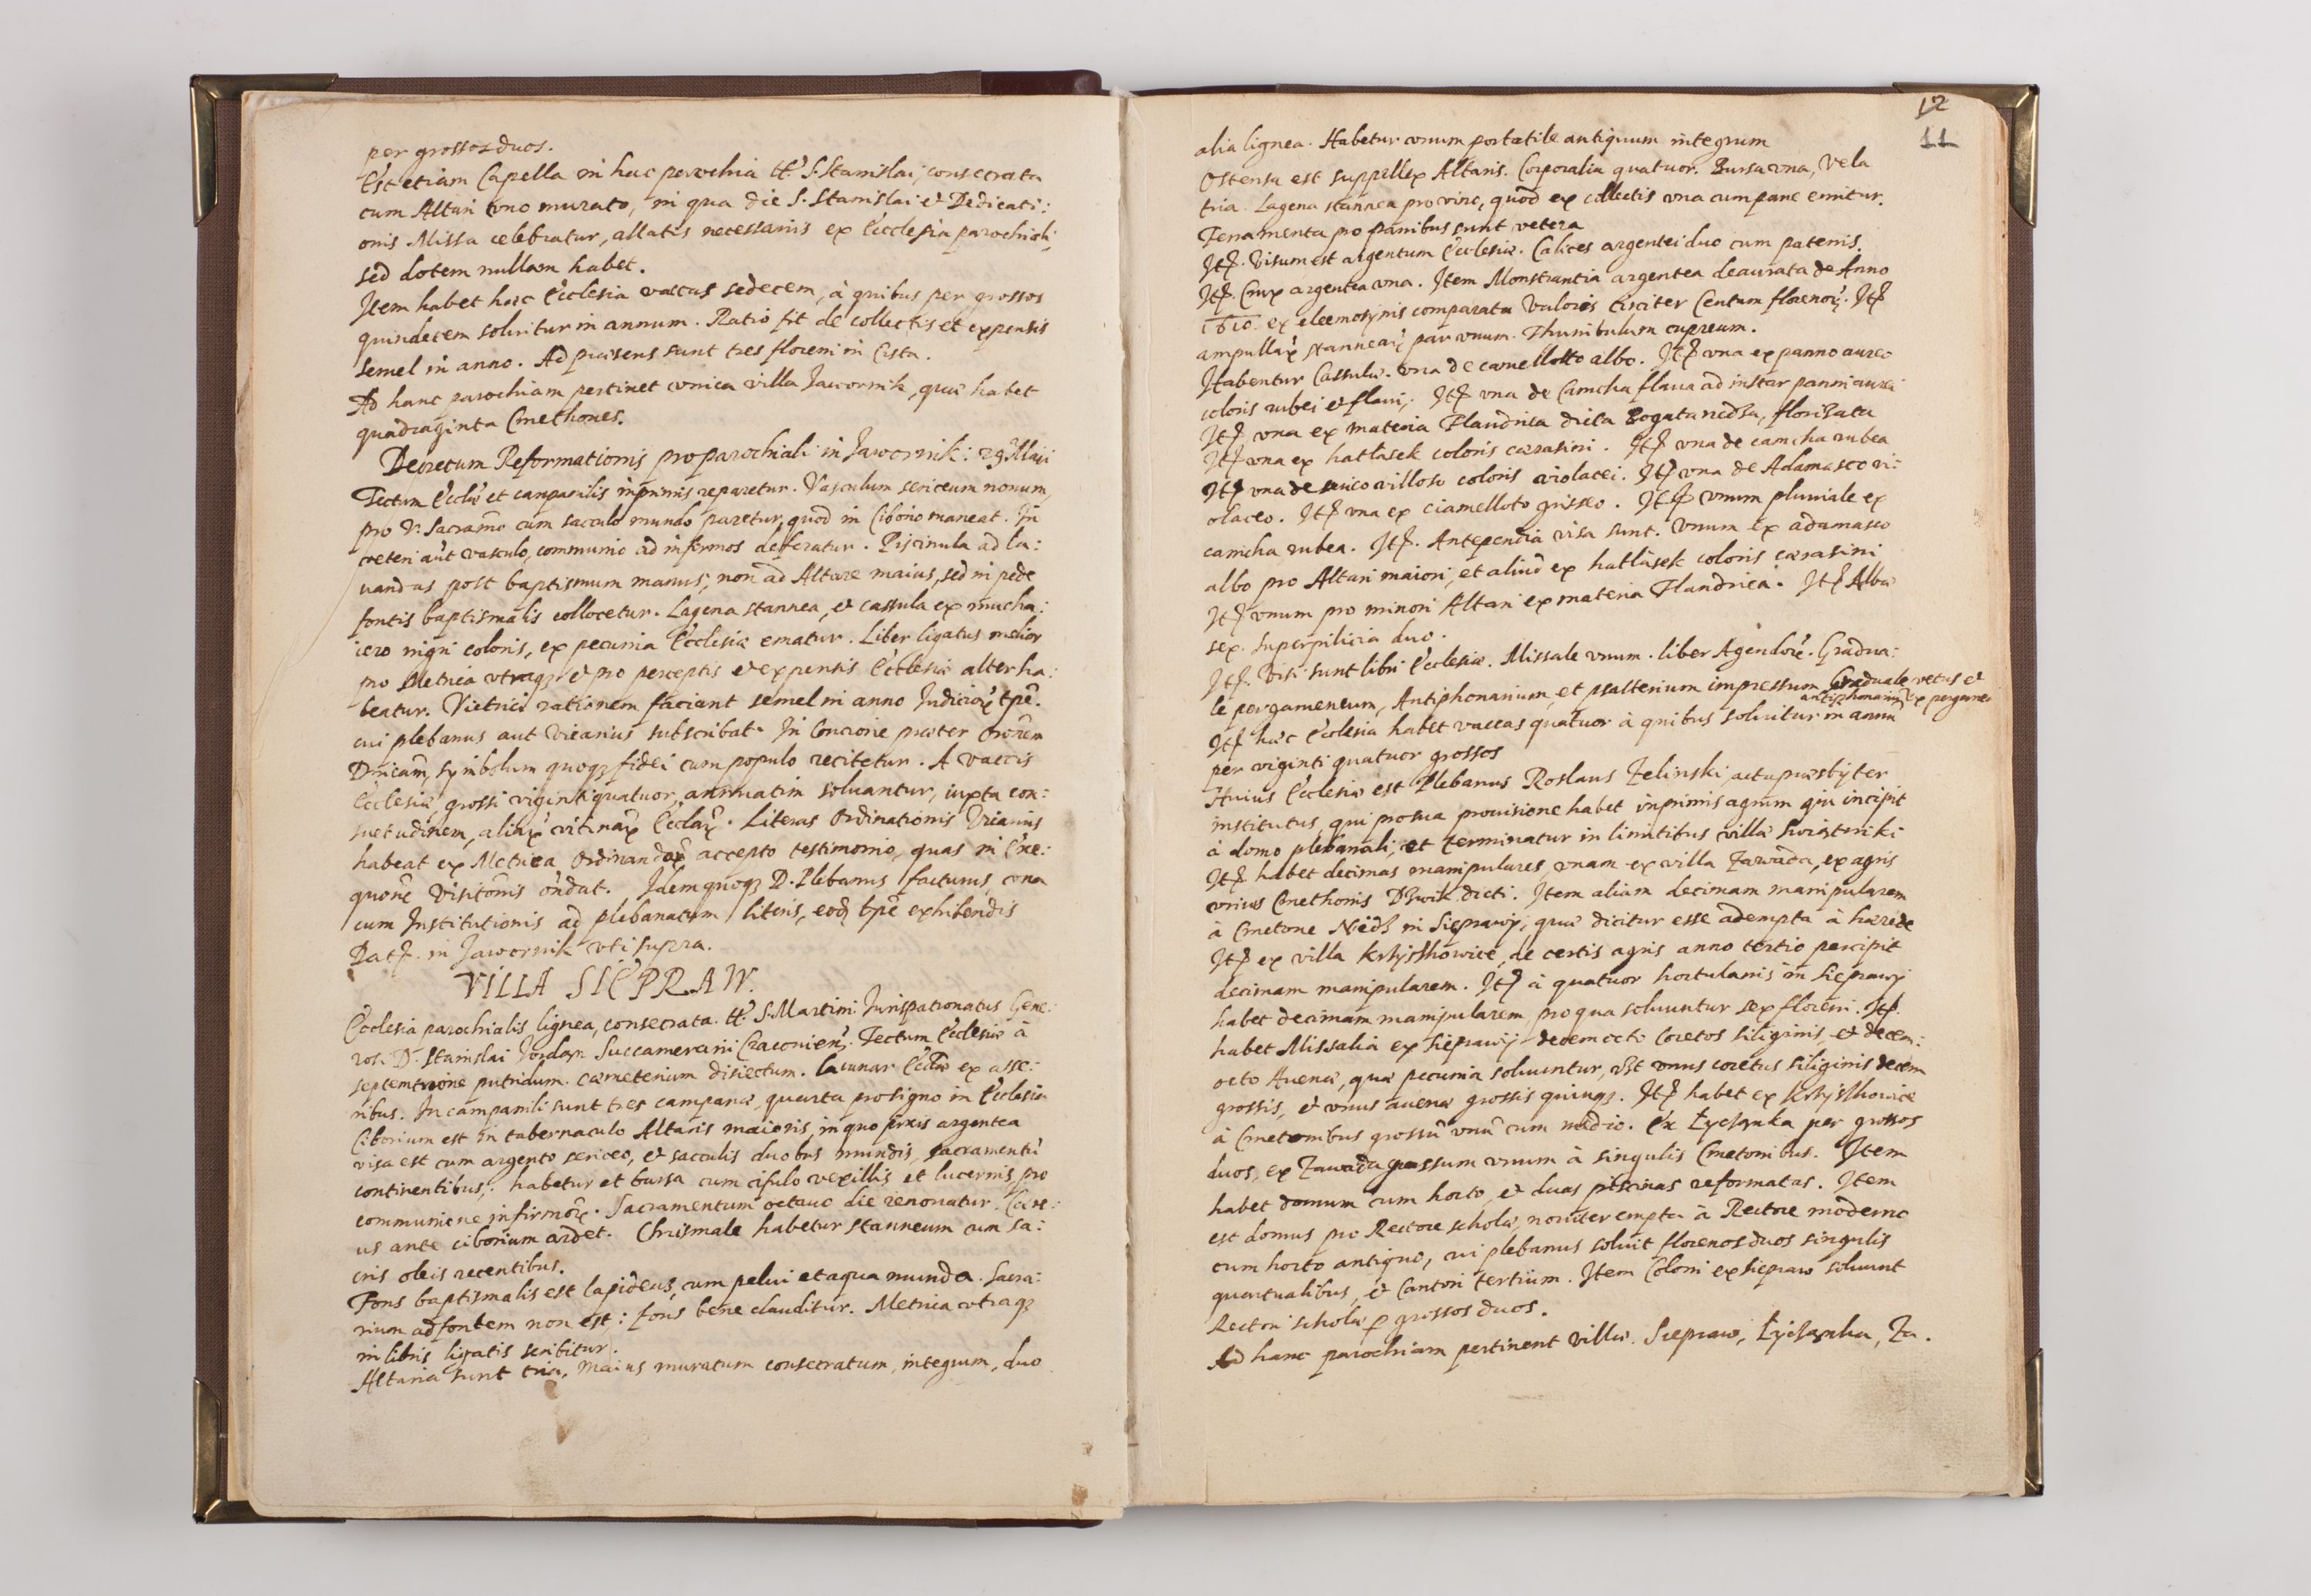 per grossos duos.
Est etiam Capella in hac parochia tt. S. Stanislai, consecrata
cum Altari uno murato, in qua die S. Stanislai et Dedicati:
onis Missa celebratur, allatis necessariis ex Ecclesia parochiali,
sed dotem nullam habet.
Item habet haec Ecclesia vaccas sedecem, à quibus per grossos
quindecem solvitur in annum. Ratio fit de collectis et expensis
semel in anno. Ad praesens sunt tres floreni in Cista.
Ad hanc parochiam pertinet unica villa Jawornik, quae habet
quadraginta Cmethones.
Decretum Reformationis pro parochiali in Jawornik: 29 Maii
Tectum Eccliae et campanilis inprimis reparetur. Vasculum sericeum nouum,
pro V. Sacramto cum sacculo mundo paretur, quod in Ciborio maneat. In
veteri aut vasculo, communio ad infirmos deferatur. Piscinula ad la:
vandas post baptismum manus, non ad Altare maius, sed in pede
fontis baptismalis collocetur. Lagena stannea, et cassula ex mucha:
iero nigri coloris, ex pecunia Ecclesiae ematur. Liber ligatus melior
pro Metrica utraq3 et pro perceptis et expensis Ecclesiae alter ha:
beatur. Vitrici rationem faciant semel in anno Judicior. tpre.
cui plebanus aut Vicarius subscribat. In Concione praeter Oronem
Dnicam, symbolum quoq3 fidei cum populo recitetur. A vaccis
Ecclesiae grossi viginti quatuor, annuatim soluantur, iuxta con:
suetudinem, aliar. vicinar. Ecclar. Literas Ordinationis Vicarius
habeat ex Metrica Ordinandor. accepto testimonio, quas in Exe:
quone Visitonis ondat. Idem quoq3 D. Plebanus facturus, una
cum Institutionis ad plebanatum literis, eod. tpre exhibendis
Dat. in Jawornik uti supra.
VILLA SIEPRAW.
Ecclesia parochialis lignea, consecrata. tt. S. Martini. Jurispatronatus Gene:
rosi D. Stanislai Jordan Succamerarii Cracovien. Tectum Ecclesiae à
septemtrione putridum. caemeterium disiectum. Lacunar Eccliae ex asse:
ribus. In campanili sunt tres campanae, quarta pro signo in Ecclesia
Ciborium est in tabernaculo Altaris maioris, in quo pixis argentea
visa est cum argento sericeo, et sacculis duobus mundis, sacramentu
continentibus, habetur et bursa cum cifulo vexillis et lucernis, pro
communione infirmor. Sacramentum octavo die renovatur. Cere:
us ante ciborium ardet. Chrismale habetur stanneum cum sa:
cris oleis recentibus.
Fons baptismalis est lapideus, cum pelui et aqua munda. Sacra:
rium ad fontem non est: fons bene clauditur. Metrica utraq3
in libris ligatis scribitur.
Altaria sunt tria, maius muratum consecratum, integrum, duo
12
11
alia lignea. Habetur unum portatile antiquum integrum
Ostensa est suppellex Altaris. Corporalia quatuor. Bursa una, Vela
tria. Lagena stannea pro vino, quod ex collectis una cum pane emitur.
Feramenta pro panibus sunt vetera
It. Visum est argentum Ecclesiae. Calices argentei duo cum patenis.
It. Crux argentea una. Item Monstrantia argentea deaurata de Anno
1610. ex eleemosynis comparata Valoris circiter Centum florenor. It
ampullar. stannear. par unum. Thuribulum cupreum.
Habentur Cassulae. una de camellotto albo. It una ex panno aureo
coloris rubei et flavi, It una de Camcha flaua ad instar panni aurei
It una ex materia Flandrica dicta Bogata nedza, florisata
It una ex hatlasek coloris carasini. It una de camcha rubea
It una de serico villoso coloris violacei. It una de Adamasco vi:
olaceo. It una ex ciamelloto griseo. It unum pluviale ex
camcha rubea. It. Antependia visa sunt. Unum ex adamasco
albo pro Altari maiori, et aliud ex hatlasek coloris carasini
It unum pro minori Altari ex materia Flandrica. It Albae
sex. Superpilicia duo.
It. Visi sunt libri Ecclesiae. Missale unum. liber Agendor. Gradua:
le pergameneum, Antiphonarium, et psalterium impressum Graduale vetus et
antiphonariu ex pergameo
It haec Ecclesia habet vaccas quatuor à quibus solvitur in annu
per viginti quatuor grossos
Huius Ecclesiae est Plebanus Roslaus Zelinski, actu praesbyter
institutus, qui pro sua provisione habet inprimis agrum qui incipit
à domo plebanali, et terminatur in limitibus villae Swiąteniki
It habet decimas manipulares, unam ex villa Zawada, ex agris
unius Cmethonis Dzwik dicti. Item aliam decimam manipularem
à Cmetone Niedz in Siepraw, quae dicitur esse adempta à haerede
It ex villa Krzyshowice, de certis agris anno tertio percipit
decimam manipularem. It à quatuor hortulanis in Sieprawi
habet decimam manipularem, pro qua soluuntur sex floreni. It.
habet Missalia ex Sieprawij decem octo Coretos siliginis, et decem:
octo Avenae, quae pecunia soluuntur, ut unus coretus siliginis decem
grossis, et unus auenae grossis quinq3. It habet ex Krzyshowice
à Cmetonibus grossu unu cum medio. Ex Łyczanka per grossos
duos, ex Zawada grossum unum à singulis Cmetonibus. Item
habet domum cum horto, et duas piscinas reformatas. Item
est domus pro Rectore scholae, noviter empta à Rectore moderno
cum horto antiquo, cui plebanus solvit florenos duos singulis
quartualibus, et Cantori tertium. Item Coloni ex Siepraw soluunt
Rectori scholae p grossos duos.
Ad hanc parochiam pertinent villae. Siepraw, Łyczanka, Za.